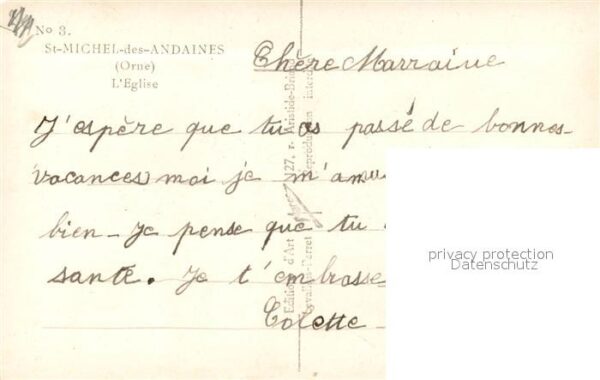 No 3.
St-MICHEL-des-ANDAINES
(Orne)
L'Eglise
Chère Marraine
J'espère que tu as passé de bonnes
vacances moi je m'amu
bien - Je pense que tu
santé. Je t'embrasse
Colette
Editions d'Art 27, r. Aristide-Bri
Levallois-Perret Reproduction interd
privacy protection
Datenschutz